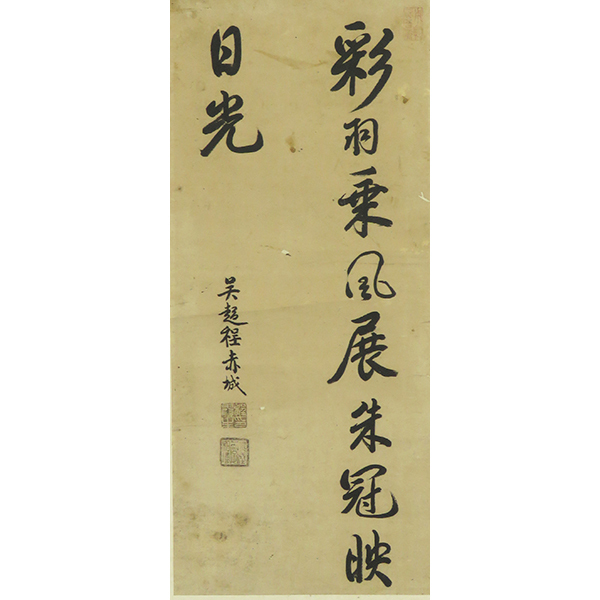 彩羽乗風展朱冠映
日光
吴趨程赤城